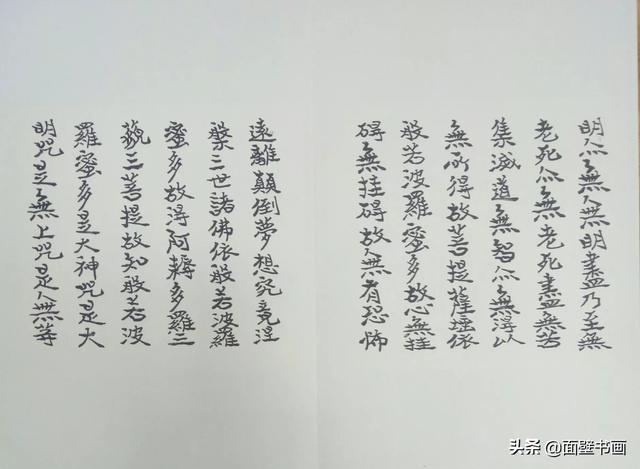 明亦無無明盡乃至無
老死亦無老死盡無苦
集滅道無智亦無得以
無所得故菩提薩埵依
般若波羅蜜多故心無挂
碍無挂碍故無有恐怖
遠離顛倒夢想究竟涅
槃三世諸佛依般若波羅
蜜多故得阿耨多羅三
藐三菩提故知般若波
羅蜜多是大神咒是大
明咒是無上咒是無等
头条 @面壁书画